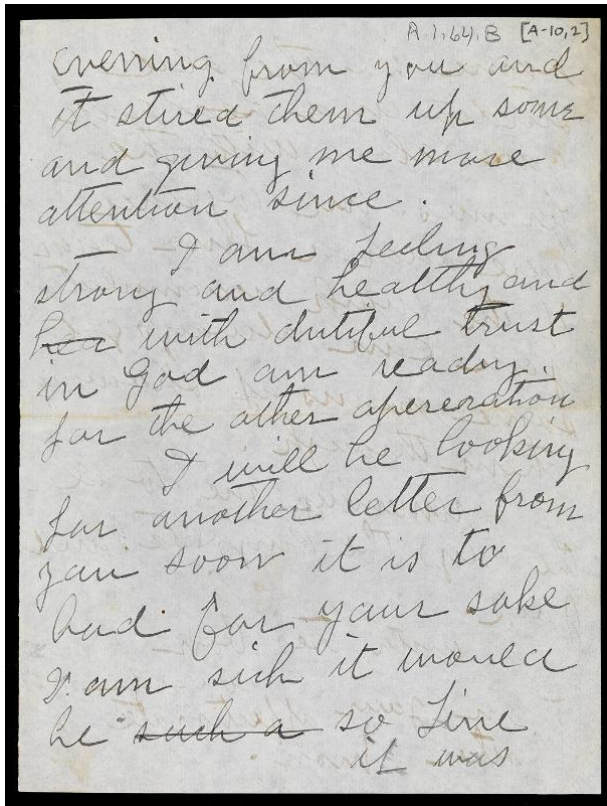 A.1.64.B [A-10,2]
Evening from you and
it stired them up some
and giving me more
attention since.
I am feeling
strong and healthy and
her with dutiful trust
in God am ready.
for the other opereration
I will be looking
for another letter from
you soon it is to
bad for your sake
I am sick it would
be such a so fine
it was